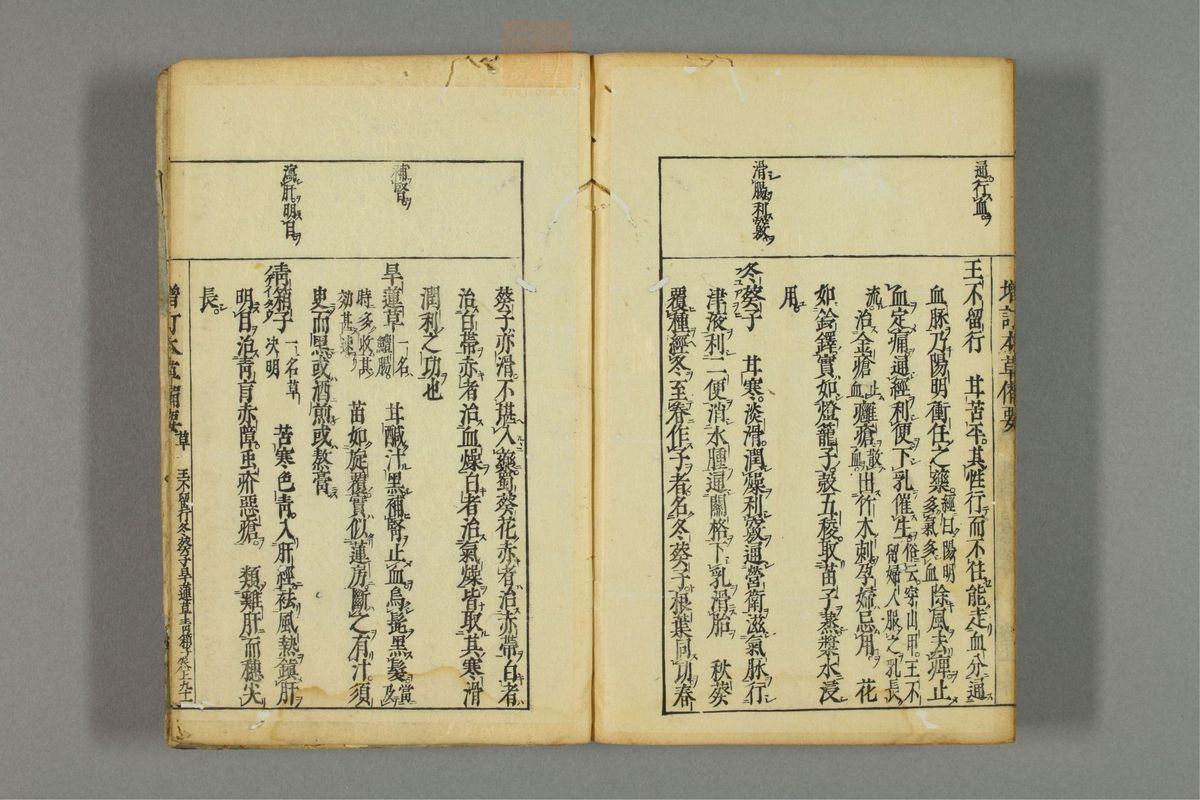 增訂本草備要
通行血
王不留行 甘苦平其性行而不住能走血分通
血脉乃陽明衝任之藥經曰陽明多氣多血除風去痺止
血定痛通經利便下乳催生俗云穿山甲王不留婦人服之乳長
流治金瘡止血癰瘡散血出竹木刺孕婦忌用 花
如鈴鐸實如燈籠子殻五稜取苗子蒸漿水浸
用
滑腸利竅
冬葵子 甘寒淡滑潤燥利竅通營衛滋氣脉行
津液利二便消水腫通關格下乳滑胎 秋葵
覆種經冬至春作子者名冬葵子根葉同功春
葵子亦滑不堪入藥蜀葵花赤者治赤帶白者
治白帶赤者治血燥白者治氣燥皆取其寒滑
潤利之功也
補腎
旱蓮草 一名鱧腸 甘鹹汁黑補腎止血烏髭黑髮當及
時多收其効甚速 苗如旋覆實似蓮房斷之有汁須
臾而黑或酒煎或熬膏
瀉肝明目
青箱子 一名草決明 苦寒色青入肝經祛風熱鎮肝
明目治青盲赤障虫疥惡瘡 類雞肝而穗尖
長
增訂本草備要 草 王不留行冬葵子旱蓮草青箱子